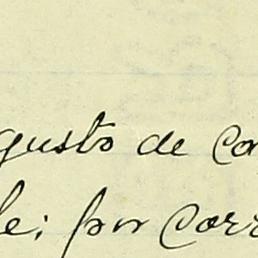 gusto de con
le; por corr